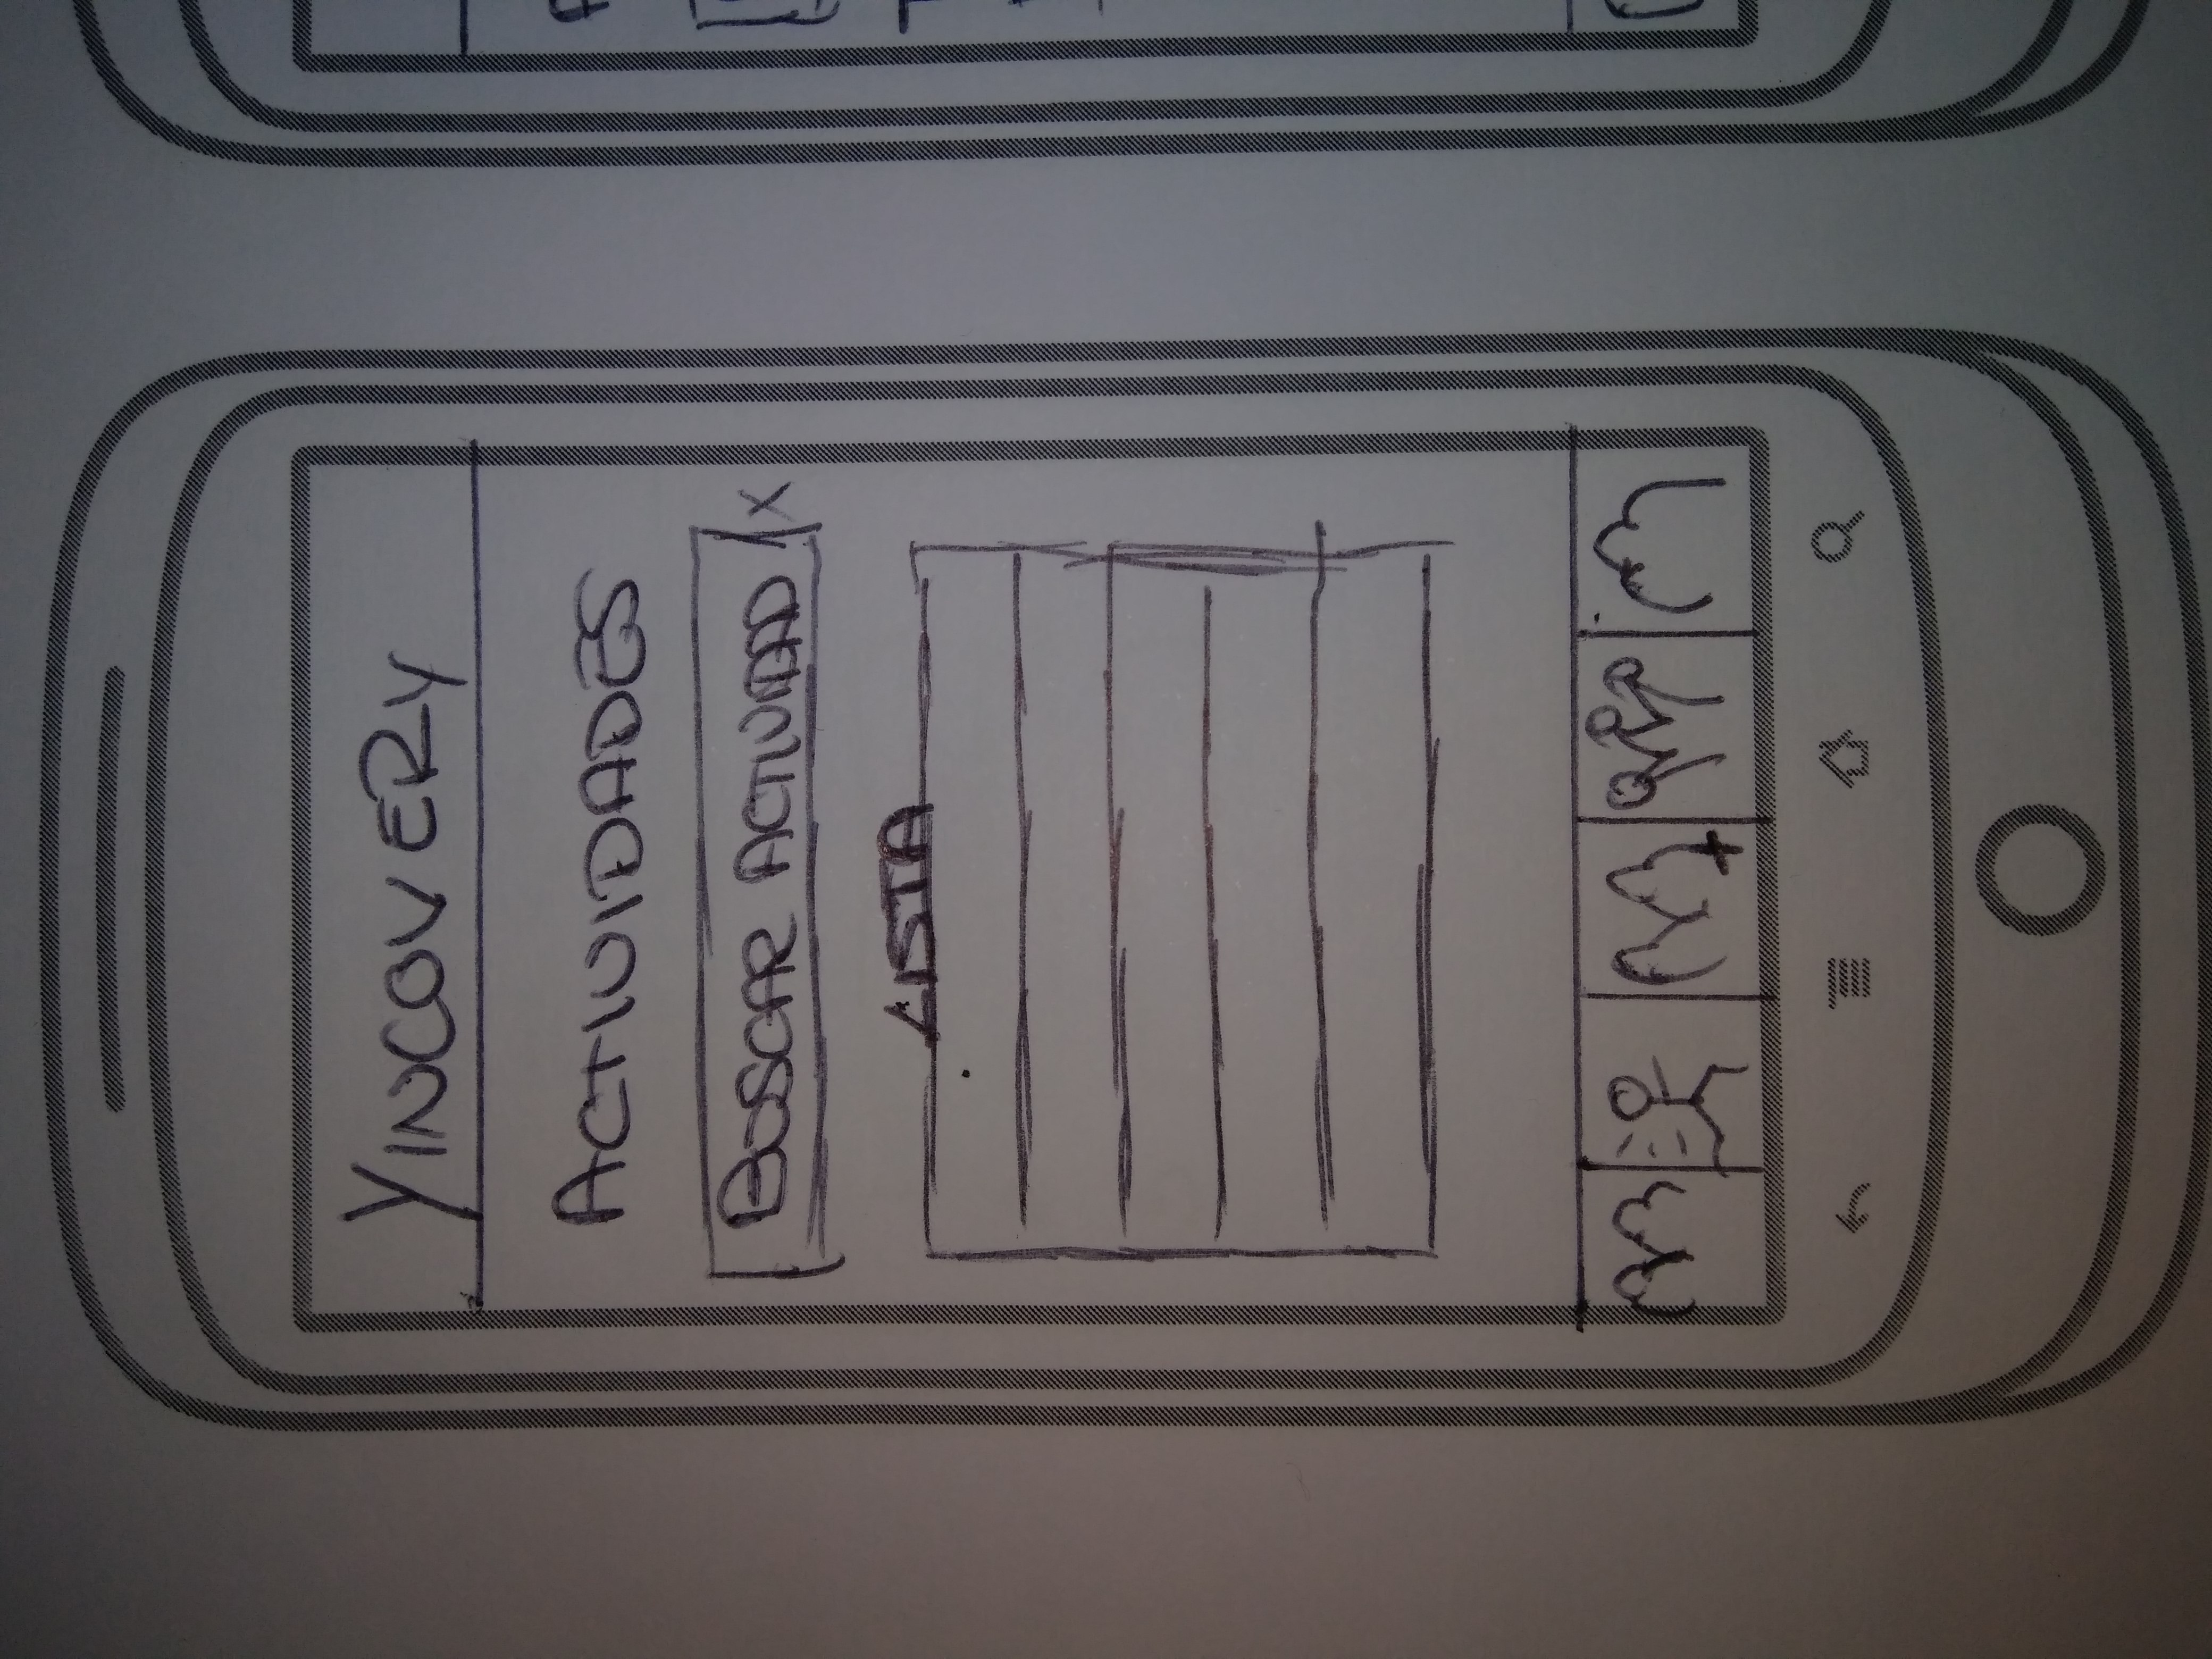 YINCOVERY
ACTIVIDADES
BUSCAR ACTIVIDAD X
LISTA